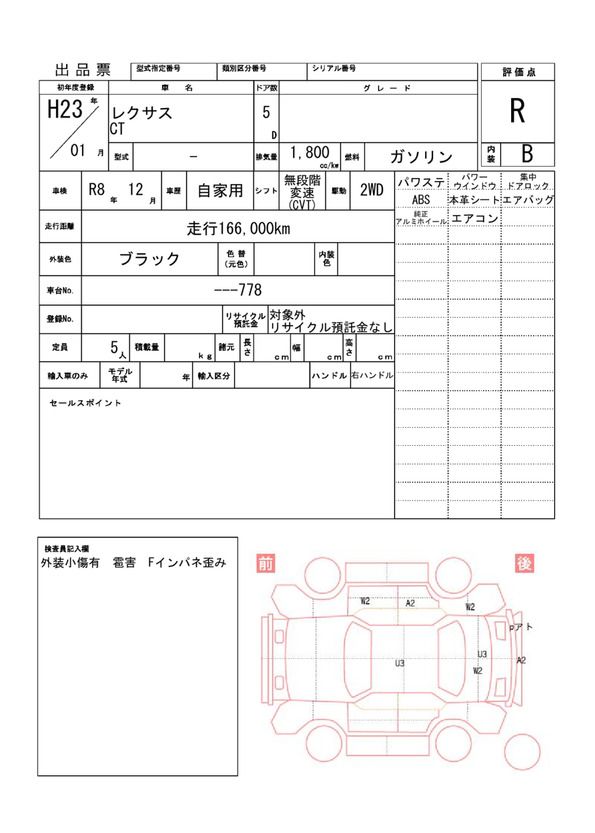 出品票 型式指定番号 類別区分番号 シリアル番号 評価点
初年度登録 車名 ドア数 グレード
H23年 レクサス 5 R
CT D
01月 型式 − 排気量 1,800 cc/kw 燃料 ガソリン 内装 B
車検 R8年 12月 車歴 自家用 シフト 無段階変速(CVT) 駆動 2WD パワステ パワーウインドウ 集中ドアロック
ABS 本革シート エアバッグ
走行距離 走行166,000km 純正アルミホイール エアコン
外装色 ブラック 色替(元色) 内装色
車台No. ---778
登録No. リサイクル預託金 対象外
リサイクル預託金なし
定員 5人 積載量 kg 諸元 長さ cm 幅 cm 高さ cm
輸入車のみ モデル年式 年 輸入区分 ハンドル 右ハンドル
セールスポイント
検査員記入欄
外装小傷有 雹害 Fインパネ歪み
前 後
W2 A2 W2
pアト
U3 U3 A2
W2